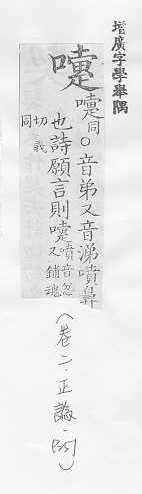 增廣字學舉隅
嚔
嚏同○音弟又音涕噴鼻
也詩願言則嚏噴音忽又鋪魂
切義
同
(卷二.正譌.135)